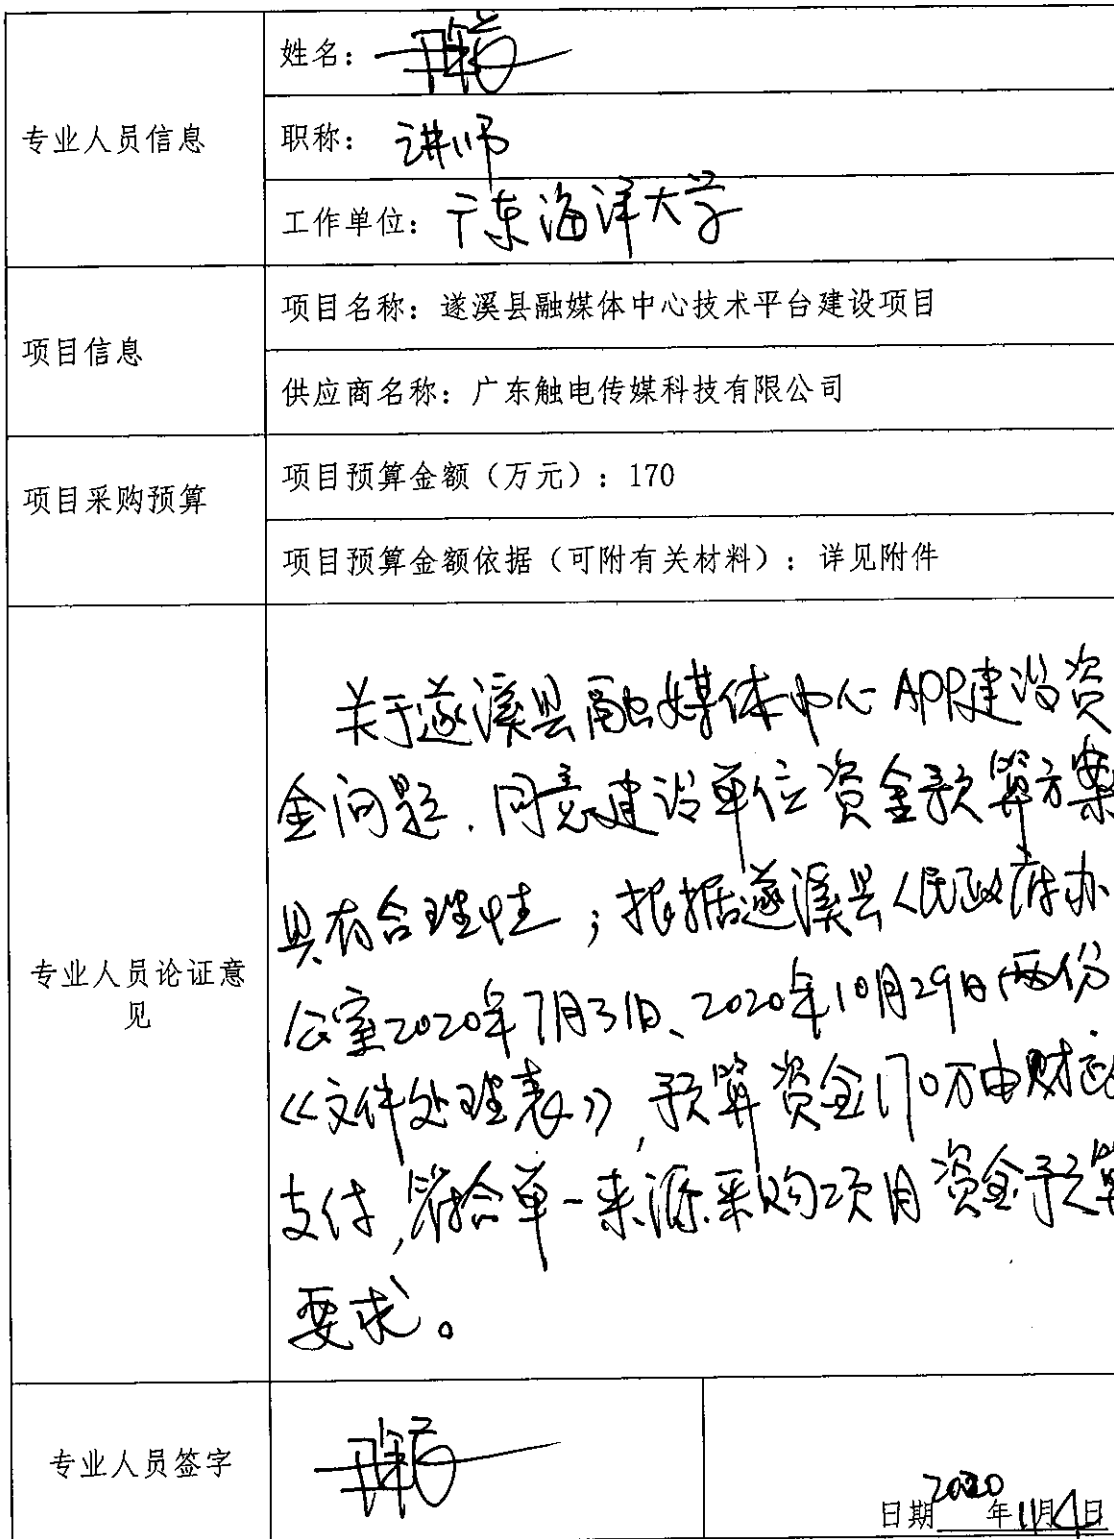 专业人员信息
姓名：
职称：讲师
工作单位：广东海洋大学
项目信息
项目名称：遂溪县融媒体中心技术平台建设项目
供应商名称：广东触电传媒科技有限公司
项目采购预算
项目预算金额（万元）：170
项目预算金额依据（可附有关材料）：详见附件
专业人员论证意
见
关于遂溪县融媒体中心APP建设资
金问题，同意建设单位资金预算方案
具有合理性；根据遂溪县人民政府办
公室2020年7月31日、2020年10月29日两份
《文件处理表》，预算资金170万由财政
支付，符合单一来源采购项目资金预算
要求。
专业人员签字
日期2020年11月4日